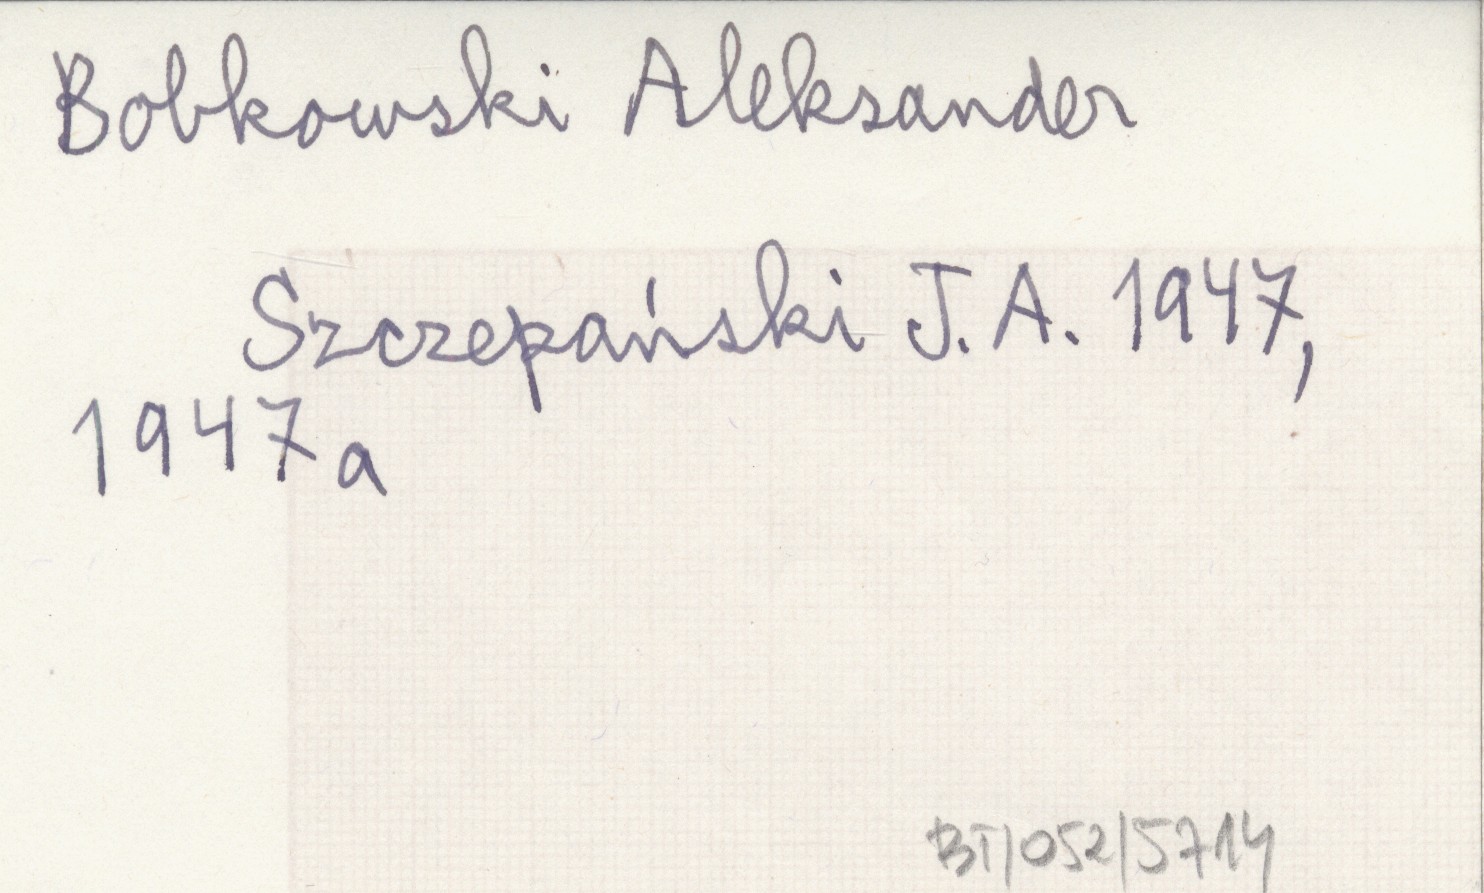 Bobkowski Aleksander
Szczepański J. A. 1947,
1947a
BT/052/5714